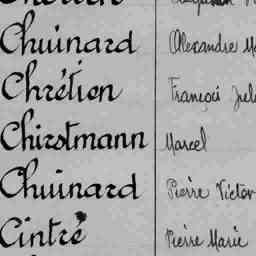 Chuinard Alexandre
Chrétien François Jule
Chirstmann Marcel
Chuinard Pierre Victor
Cintré Pierre Marie